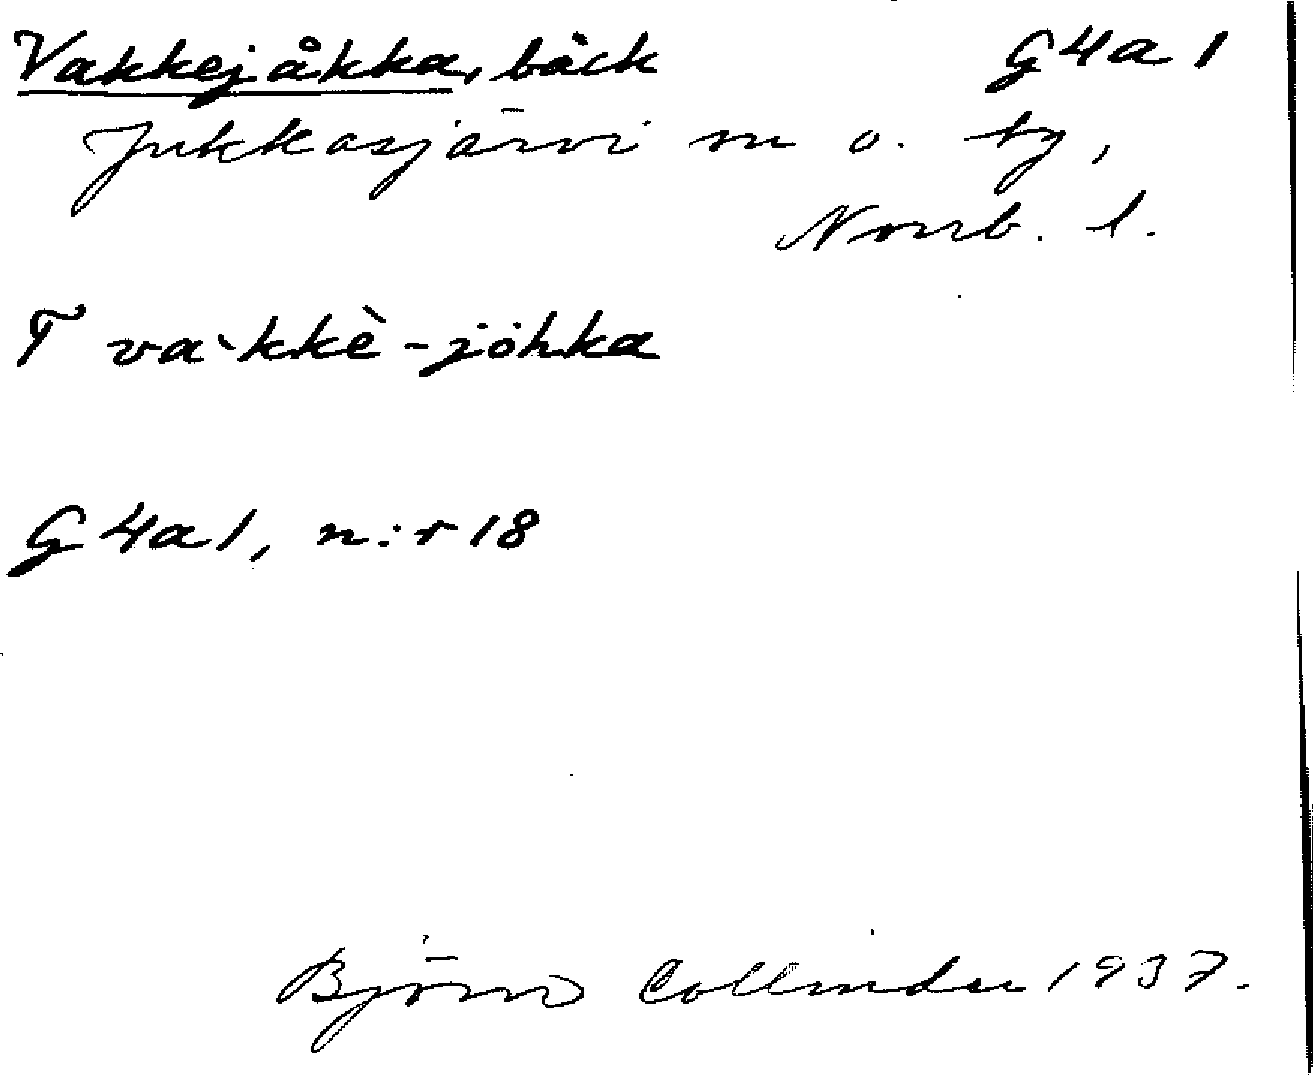 Vakkejåkka, bäck G4a1
Jukkasjärvi sn o. tg,
Norrb. l.
T va`kkè-jòhka
G4a1, n:r 18
Björn Collinder 1937.